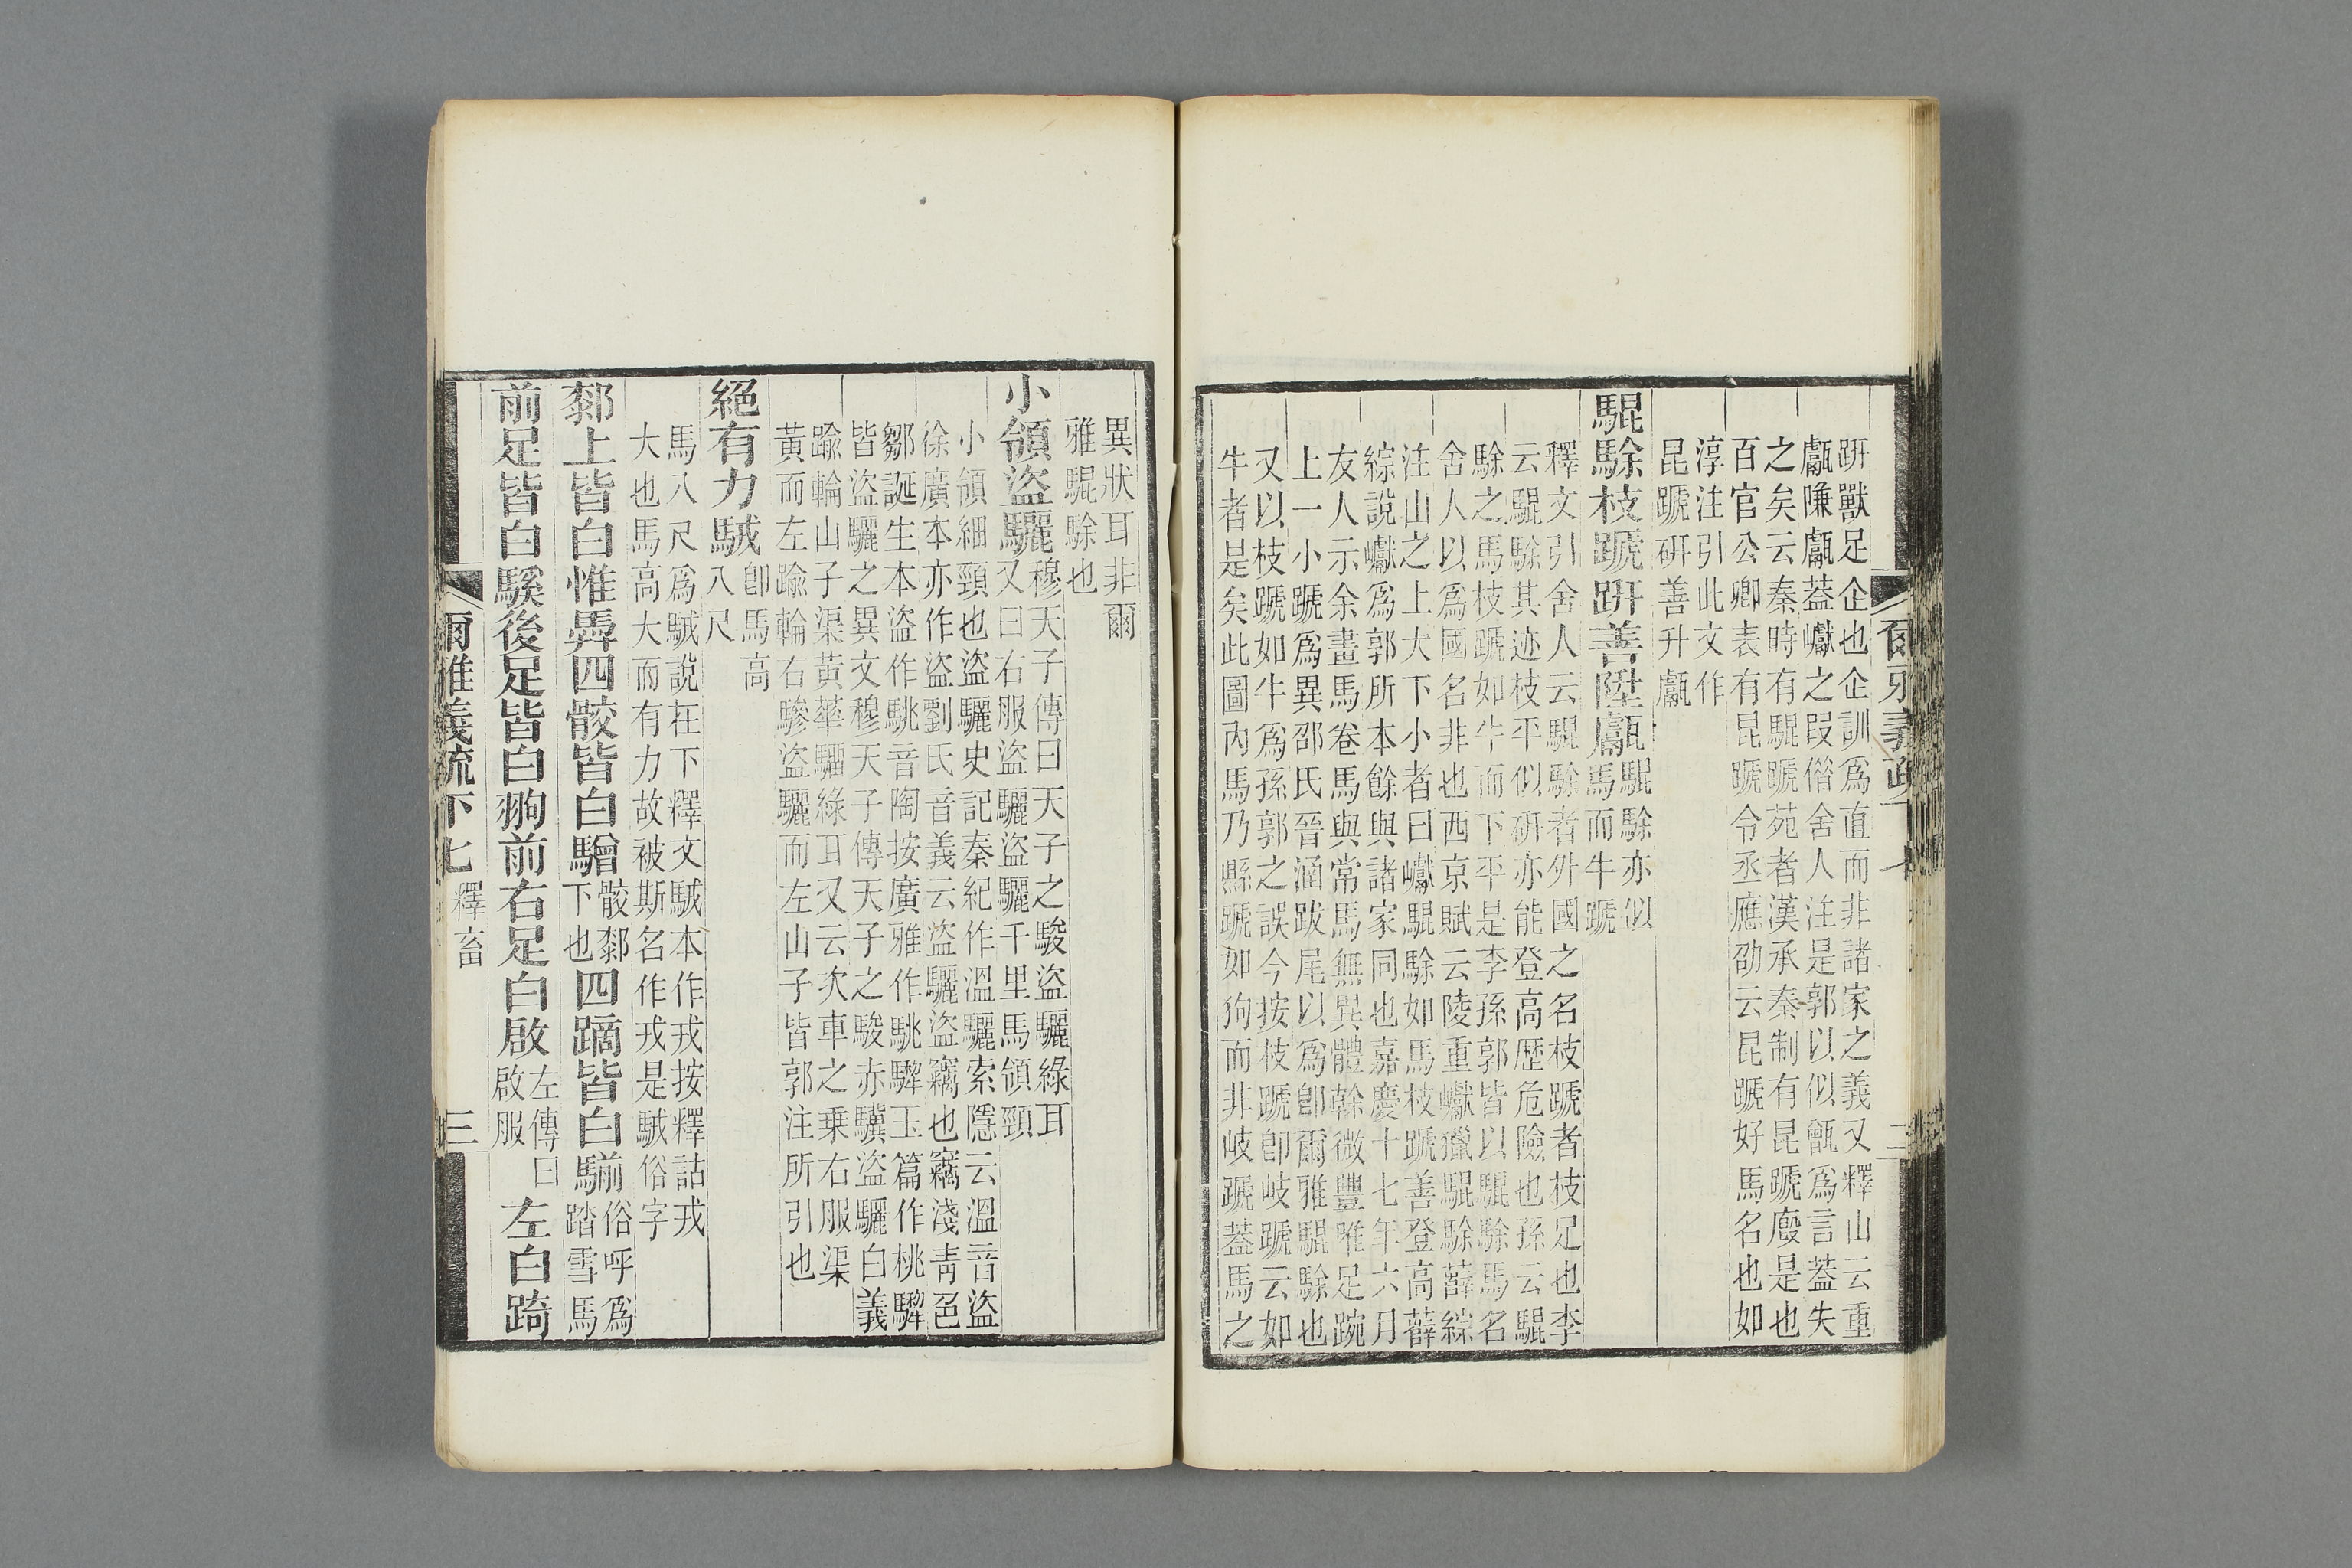 趼獸足企也企訓爲直而非諸家之義又釋山云重
甗隒甗蓋巘之叚偕舍人注是郭以似甑爲言蓋失
之矣云秦時有騉蹏苑者漢承秦制有昆蹏廄是也
百官公卿表有昆蹏令丞應劭云昆蹏好馬名也如
淳注引此文作
昆蹏硏善升甗
騉駼枝蹏趼善陞甗騉駼亦似
馬而牛蹏
釋文引舍人云騉駼者外國之名枝蹏者枝足也李
云騉駼其迹枝平似硏亦能登高歷危險也孫云騉
駼之馬枝蹏如牛而下平是李孫郭皆以騉駼馬名
舍人以爲國名非也西京賦云陵重巘獵騉駼薛綜
注山之上大下小者曰巘騉駼如馬枝蹏善登高薛
綜說巘爲郭所本餘與諸家同也嘉慶十七年六月
友人示余畫馬卷馬與常馬無異體幹微豐唯足踠
上一小蹏爲異邵氏晉涵跋尾以爲卽爾雅騉駼也
又以枝蹏如牛爲孫郭之誤今按枝蹏卽岐蹏云如
牛者是矣此圖內馬乃縣蹏如狗而非岐蹏蓋馬之
爾雅義疏
二
異狀耳非爾
雅騉駼也
小領盜驪穆天子傳曰天子之駿盜驪綠耳
又曰右服盜驪盜驪千里馬領頸
小領細頸也盜驪史記秦紀作溫驪索隱云溫音盜
徐廣本亦作盜劉氏音義云盜驪盜竊也竊淺靑色
鄒誕生本盜作駣音陶按廣雅作駣䮫玉篇作桃䮫
皆盜驪之異文穆天子傳天子之駿赤驥盜驪白義
踰輪山子渠黃華騮綠耳又云次車之乘右服渠
黃而左踰輪右驂盜驪而左山子皆郭注所引也
絕有力駥卽馬高
八尺
馬八尺爲駥說在下釋文駥本作戎按釋詁戎
大也馬高大而有力故被斯名作戎是駥俗字
䣛上皆白惟馵四骹皆白驓骹䣛
下也四蹢皆白騚俗呼爲
踏雪馬
前足皆白騱後足皆白翑前右足白啟左傳曰
啟服左白踦
爾雅義疏下七 釋畜
三